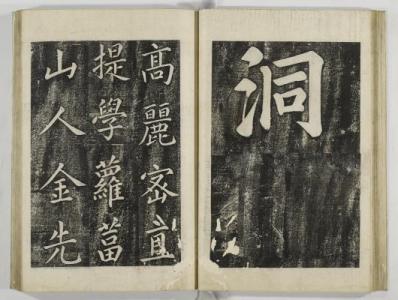 洞
高麗密直
提學蘿蔔
山人金先